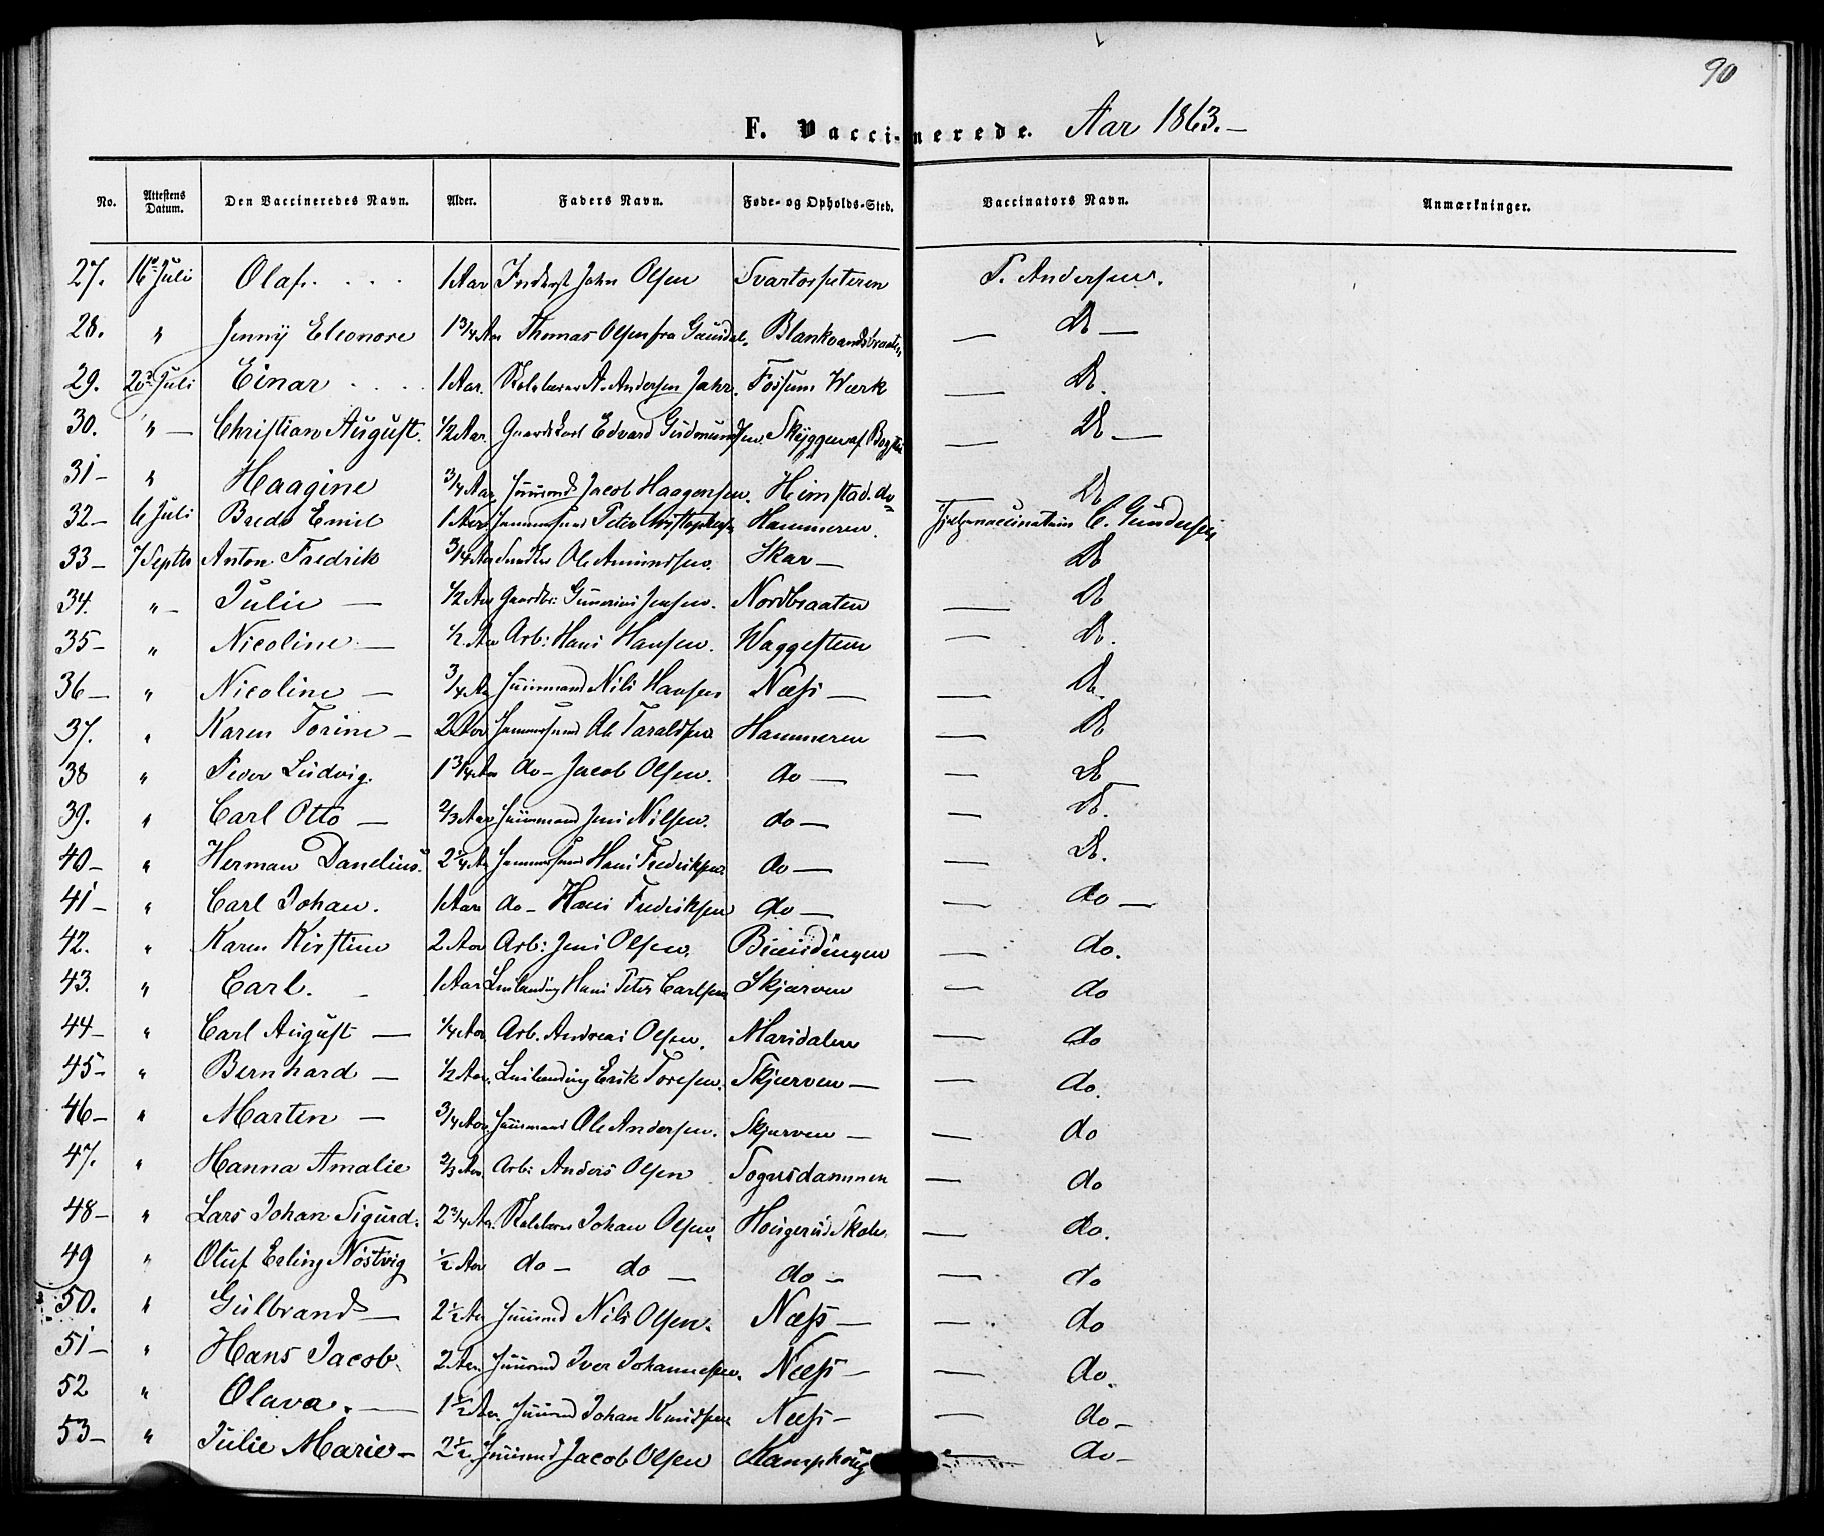 90
F. Vaccinerede. Aar 1863.—
No. Attestens Datum. Den Vaccineredes Navn. Alder. Faders Navn. Føde- og Opholds-Sted. Vaccinators Navn. Anmærkninger.
27. 16de Juli Olaf. . . . 1 Aar Inderst John Olsen Svartorseteren P. Andersen.
28. " Jenny Eleonore 1 3/4 Aar Thomas Olsen fra Gausdal. Blankvandsbraaten — Do —
29. 23de Juli Einar . . . 1 Aar. Skolelærer A. Andersen Jahr. Fossum Værk — Do.
30. " — Christian August. 1/2 Aar. Gaardskarl Edvard Gudmundsen. Skyggen af Bogstad — Do —
31 — " Haagine 3/4 Aar Huusmd Jacob Haagensen. Heimstad. do Do
32 — 6 Juli Bredo Emil 1 Aar Hammersmd Peter Christophersen Hammeren. Hjelpevaccinatrice C. Gundersen
33 — 7 Septbr Anton Fredrik 3/4 Aar Ole Amundsen. Skar — Do
34. " — Julie — 1/2 Aar Gaardbr: Gunerius Jensen. Nordbraaten — Do
35 — " Nicoline — 1/2 Aar Arb: Hans Hansen. Waggestein — Do.
36 — " Nicoline — 3/4 Aar Huusmand Nils Hansen Næss — — Do.
37. " Karen Torine — 2 Aar Hammersmd Ole Taraldsen Hammeren — Do
38 " Peder Ludvig. 1 3/4 Aar do — Jacob Olsen. do — — Do
39. " Carl Otto — 2/3 Aar Huusmand Jens Nilsen. do — — Do.
40 — " Herman Danelius. 2 1/4 Aar Hammersmd Hans Fredriksen do — — Do.
41 — " Carl Johan. 1 Aar do — Hans Fredriksen do — — do —
42. " Karen Kirstine 2 Aar Arb: Jens Olsen. — do.
43. " Carl. — 1 Aar Leilænding Hans Peter Carlsen Skjærven — do
44 — " Carl August — 1/4 Aar Arb. Andreas Olsen. Maridalen — do
45 — " Bernhard — 1/2 Aar. Leilænding Erik Toresen. Skjærven — — do.
46 — " Martin — 3/4 Aar. Huusmand Ole Andersen. Skjærven — — do
47. " Hanna Amalie 2/3 Aar. Arb: Anders Olsen Sognsdammen — do
48 — " Lars Johan Sigurd. 2 3/4 Aar. Skolelærer Johan Olsen. Hougerud Skole. — do.
49 " Oluf Erling Nöstvig 1/2 Aar do — do — do — — do
50. " Gulbrand — 2 1/2 Aar Huusmd Nils Olsen. Næss — — do
51 — " Hans Jacob. 2 Aar. Huusmd Iver Johannesen. Næss — — do.
52 " Olava. — 1 1/2 Aar. Huusmd Johan Knudsen Næss — — do —
53 — " Julie Marie — 2 1/2. Huusmd Jacob Olsen Kamphoug — do —